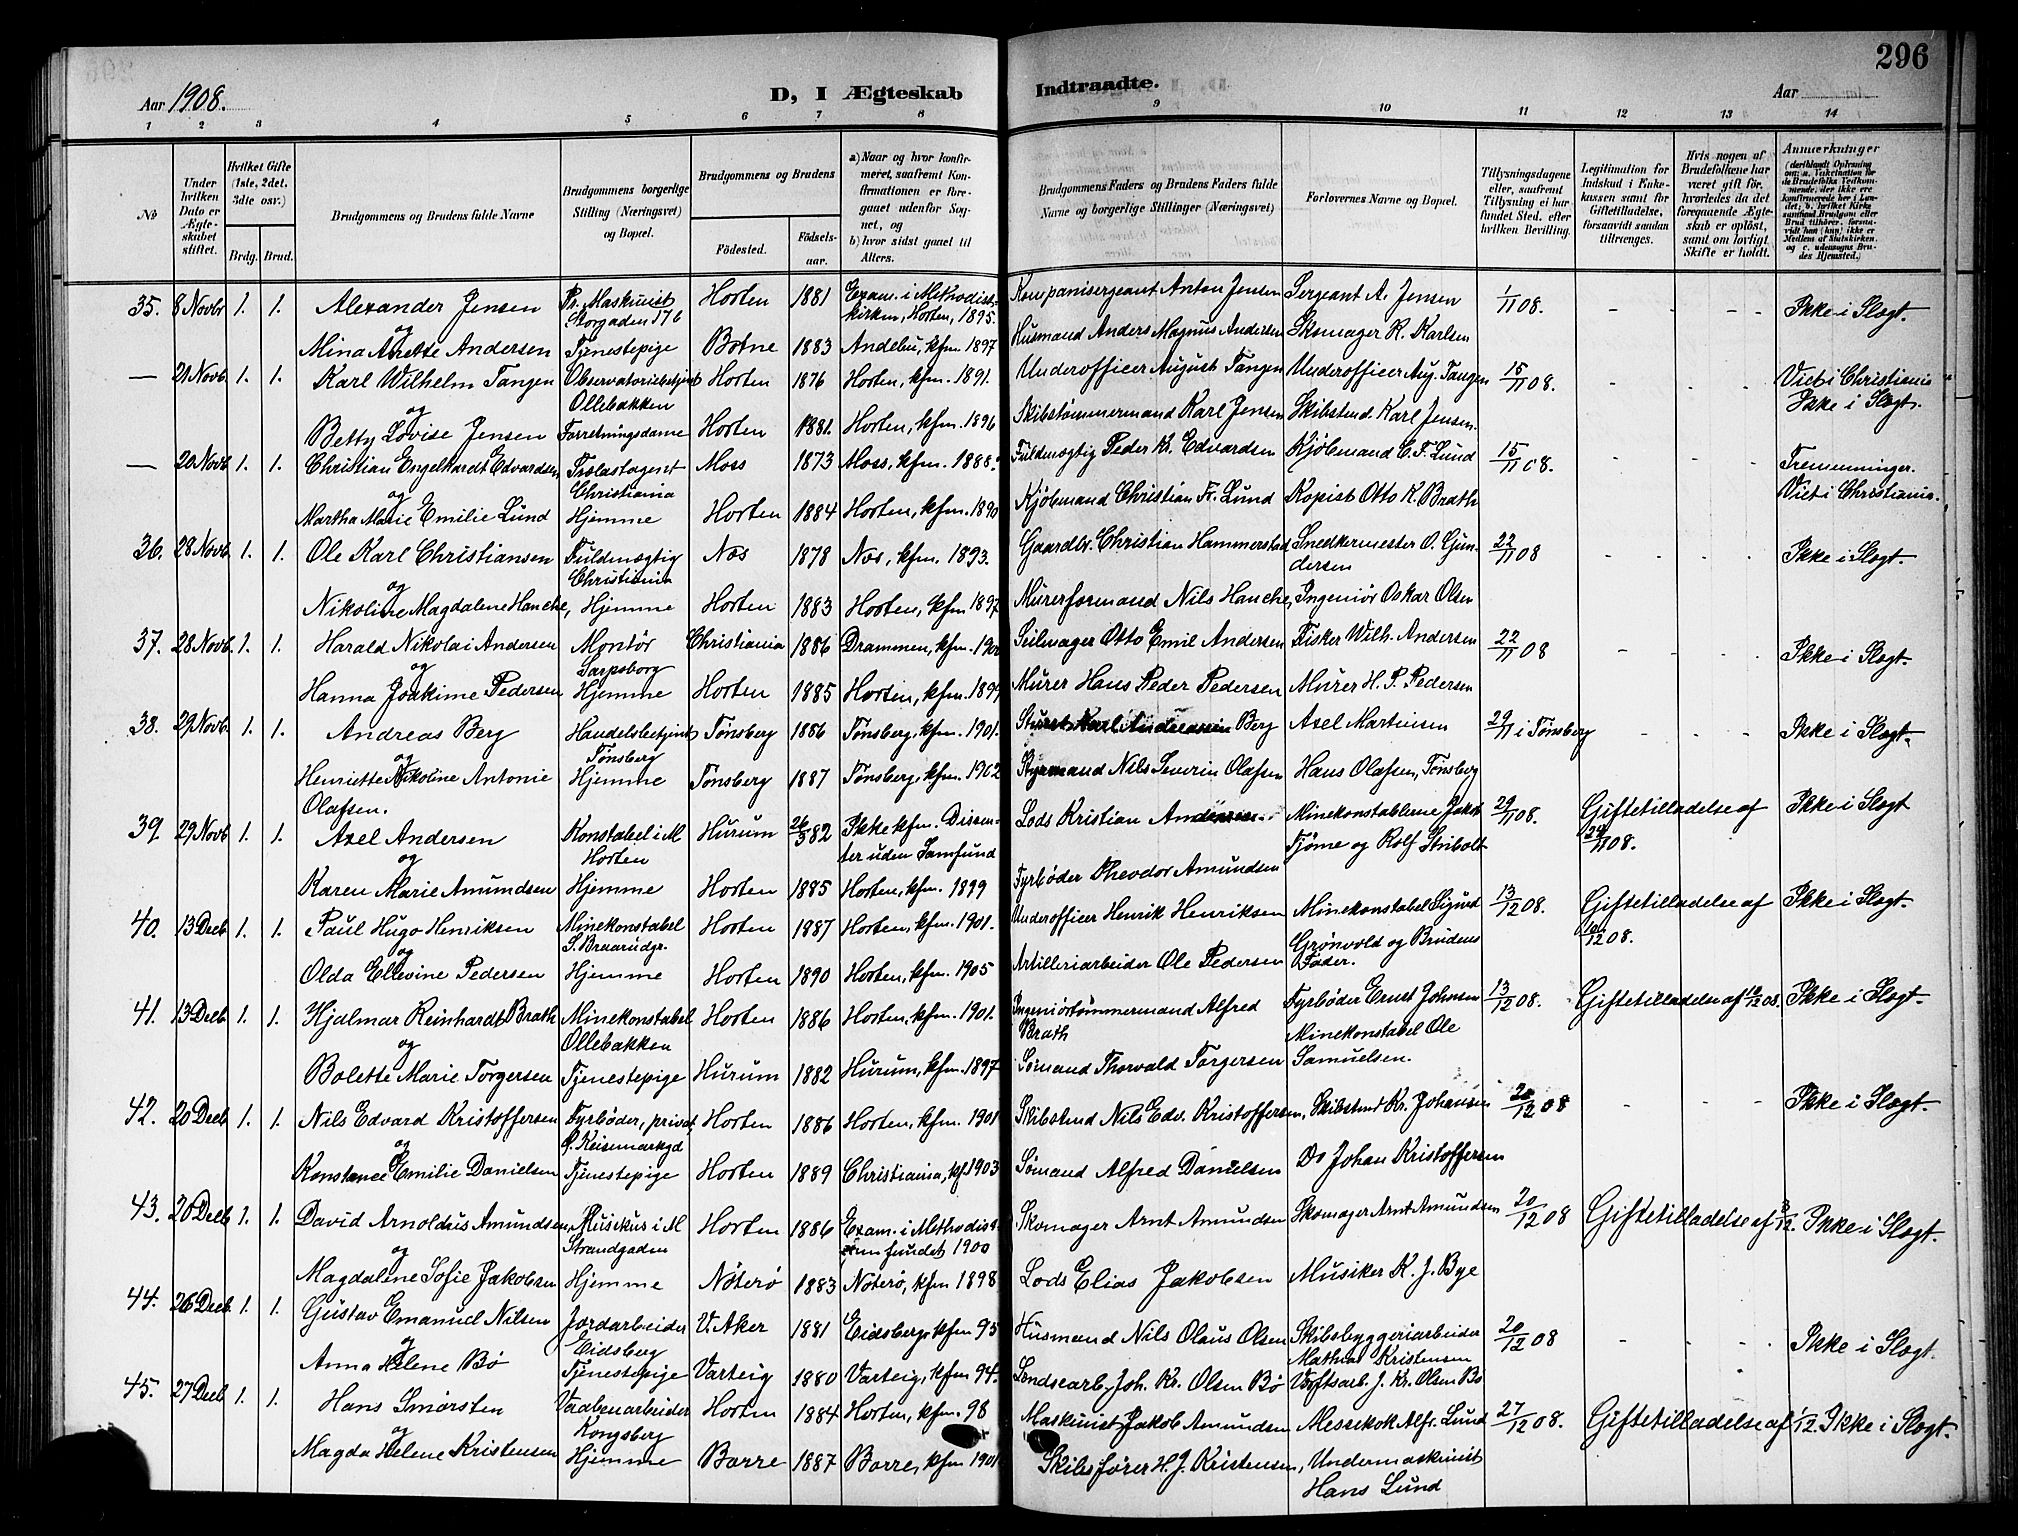 296
Aar 1908.
D, I Ægteskab
Indtraadte.
Aar
1 2 3 4 5 6 7 8 9 10 11 12 13 14
No
Under hvilken Dato er Ægteskabet stiftet.
Hvilket Gifte (1ste, 2det, 3die osv.)
Brdg. Brud.
Brudgommens og Brudens fulde Navne
Brudgommens borgerlige Stilling (Næringsvei) og Bopæl.
Brudgommens og Brudens
Födested. Födselsaar.
a) Naar og hvor konfirmeret, saafremt Konfirmationen er foregaaet udenfor Sognet, og
b) hvor sidst gaaet til Alters.
Brudgommens Faders og Brudens Faders fulde Navne og borgerlige Stillinger (Næringsvei)
Forlovernes Navne og Bopæl.
Tillysningsdagene eller, saafremt Tillysning ei har fundet Sted, efter hvilken Bevilling.
Legitimation for Indskud i Enkekassen samt for Giftetilladelse, forsaavidt saadan tiltrænges.
Hvis nogen af Brudefolkene har været gift för, hvorledes da det foregaaende Ægteskab er oplöst, samt om lovligt Skifte er holdt.
Anmærkninger (deriblandt Oplysning om: a. Vakcination for de Brudefolks Vedkommende, der ikke ere konfirmerede her i Landet; b. hvilket Kirkesamfund Brudgom eller Brud tilhörer, forsaavidt han (hun) ikke er Medlem af Statskirken, og c. udensogns Brudes Hjemsted.)
35. 8 Novbr 1. 1. Alexander Jensen Pr. Maskinist Storgaden 17b Horten 1881 Exam. i Methodistkirken, Horten, 1895. Kompanisergeant Anton Jensen Sergeant A. Jensen 1/11 08. - - - - Ikke i Slægt.
og
Mina Anette Andersen Tjenestepige Botne 1883 Andebu, kfm. 1897 Husmand Anders Magnus Andersen Skomager K. Karlsen
— 21 Novb. 1. 1. Karl Wilhelm Tangen Observatoriebetjent Ollebakken Horten 1876 Horten, kfm. 1891. Underofficer August Tangen Underofficer Aug. Tangen 15/11 08. - - - Viet i Christiania Ikke i Slægt.
og
Betty Lovise Jensen Forretningsdame Horten 1881. Horten, kfm. 1896 Skibstømmermand Karl Jensen Skibstmd. Karl Jensen.
— 20 Novb 1. 1. Christian Engelhardt Edvardsen Trælastagent Christiania Moss 1873 Moss, kfm. 1888. Fuldmægtig Peder Kr. Edvardsen Kjøbmand C. F. Lund 15/11 08. - - - Tremenninger. Viet i Christiania.
og
Martha Marie Emilie Lund Hjemme Horten 1884 Horten, kfm. 1890 Kjøbmand Christian Fr. Lund Kopist Otto K. Brath
36. 28 Novb. 1. 1. Ole Karl Christiansen Fuldmægtig Christiania Næs 1878 Næs, kfm. 1893. Gaardbr. Christian Hammerstad Snedkermester O. Gundersen 22/11 08 - - - Ikke i Slægt.
og
Nikoline Magdalene Hanche, Hjemme Horten 1883 Horten, kfm. 1897 Murerformand Nils Hanche, Ingeniør Oskar Olsen
37. 28 Novb. 1. 1. Harald Nikolai Andersen Montør Sarpsborg Christiania 1886 Drammen, kfm. Seilmager Otto Emil Andersen Fisker Wilh. Andersen 22/11 08 - - - Ikke i Slægt.
og
Hanna Joakime Pedersen Hjemme Horten 1885 Horten, kfm. 1899 Murer Hans Peder Pedersen Murer H. P. Pedersen
38. 29 Novb. 1. 1. Andreas Berg Handelsbetjent Tønsberg Tønsberg 1886 Tønsberg, kfm. 1901. Berg Axel Martinsen 29/11 i Tønsberg - - - Ikke i Slægt.
og
Henriette Nikoline Antonie Olafsen. Hjemme Tønsberg 1887 Tønsberg, kfm. 1902 Styrmand Nils Severin Olafsen Hans Olafsen, Tønsberg
39. 29 Novb 1. 1. Axel Andersen Konstabel i M Horten Hurum 26/3 82 Ikke kfm. Dissenter uden Samfund Lods Kristian Andersen Minekonstablerne Jakob Tjøme og Rolf Stribolt 29/11 08. Giftetilladelse af 24/11 08. Ikke i Slægt
og
Karen Marie Amundsen Hjemme Horten 1885 Horten, kfm. 1899 Fyrbøder Theodor Amundsen
40. 13 Decb. 1. 1. Paul Hugo Henriksen Minekonstabel S. Braarudgr. Horten 1887 Horten, kfm. 1901. Underofficer Henrik Henriksen Minekonstabel Sigurd Grønvold og Brudens Fader. 13/12 08. Giftetilladelse af 10/12 08. Ikke i Slægt.
og
Olda Ellevine Pedersen Hjemme Horten 1890 Horten, kfm. 1905 Artilleriarbeider Ole Pedersen
41. 13 Decb. 1. 1. Hjalmar Reinhardt Brath Minekonstabel Ollebakken Horten 1886 Horten, kfm. 1901. Ingeniørtømmermand Alfred Brath Fyrbøder Ernst Johnsen Minekonstabel Ole Samuelsen. 13/12 08. Giftetilladelse af 10/12 08. Ikke i Slægt.
og
Bolette Marie Torgersen Tjenestepige Hurum 1882 Hurum, kfm. 1897 Sømand Thorvald Torgersen
42. 20 Decb 1. 1. Nils Edvard Kristoffersen Fyrbøder, privat, Ø. Keisemarkgd Horten 1886 Horten, kfm. 1901 Skibstmd Nils Edv. Kristoffersen, Skibstmd Kr. Johansen 20/12 08 - - - Ikke i Slægt.
og
Konstance Emilie Danielsen Tjenestepige Horten 1889 Christiania, kf. 1903 Sømand Alfred Danielsen Do Johan Kristoffersen
43. 20 Decb 1. 1. David Arnoldus Amundsen, Musikus i M Strandgaden Horten 1886 Exam. i Methodistsamfundet 1900 Skomager Arnt Amundsen Skomager Arnt Amundsen 20/12 08 Giftetilladelse af 3/12. Ikke i Slægt.
og
Magdalene Sofie Jakobsen Hjemme Nøterø 1883 Nøterø, kfm 1898 Lods Elias Jakobsen Musiker K. J. Bye
44. 26 Decb. 1. 1. Gustav Emanuel Nilsen Jordarbeider Eidsberg V. Aker 1881 Eidsberg, kfm 95 Husmand Nils Olaus Olsen Skibsbyggeriarbeider Mathias Kristensen 20/12 08 - - - Ikke i Slægt.
og
Anna Helene Bø Tjenestepige Varteig 1880 Varteig, kfm 94. Londsearb. Joh. Kr. Olsen Bø Værftsarb. J. Kr. Olsen Bø
45. 27 Decb 1. 1. Hans Smørsten Vaabenarbeider Kongsberg Horten 1884 Horten, kfm. 98 Maskinist Jakob Amundsen Messekok Alfr. Lund 27/12 08. Giftetilladelse af 1/12. Ikke i Slægt.
og
Magda Helene Kristensen Hjemme Borre 1887 Borre, kfm 1901 Skibsfører H. J. Kristensen, Undermaskinist Hans Lund